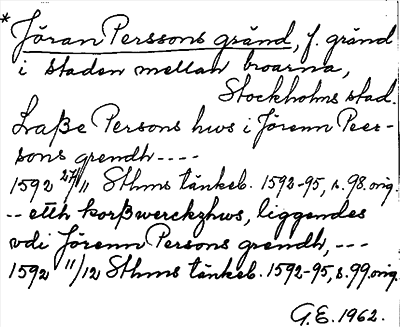 * Jöran Perssons gränd, f. gränd
i staden mellan broarna,
Stockholms stad.
Laße Persons hws i Jörenn Peer-
sons grendh ----
1592 27/11 Sthms tänkeb. 1592-95, s. 98. orig.
-- etth korßwerckzhws, liggendes
vdi Jörenn Persons grendh, ---
1592 11/12 Sthms tänkeb. 1592-95, s. 99. orig.
G.E. 1962.